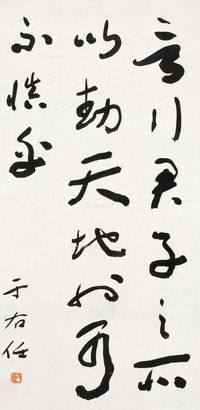 言行君子之所
以動天地也可
不慎乎
于右任